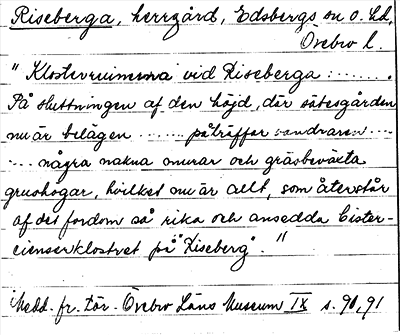 Riseberga, herrgård, Edsbergs sn o. hd,
Örebro l.
"Klosterruinerna vid Riseberga .......
På sluttningen af den höjd, där sätesgården
nu är belägen ....... påträffar vandraren ....
.... några nakna murar och gräsbeväxta
grushögar, hvilket nu är allt, som återstår
af det fordom så rika och ansedda Cister-
cienserklostret på "Riseberg"."
Medd. fr. För. Örebro Läns Museum IX s. 90, 91